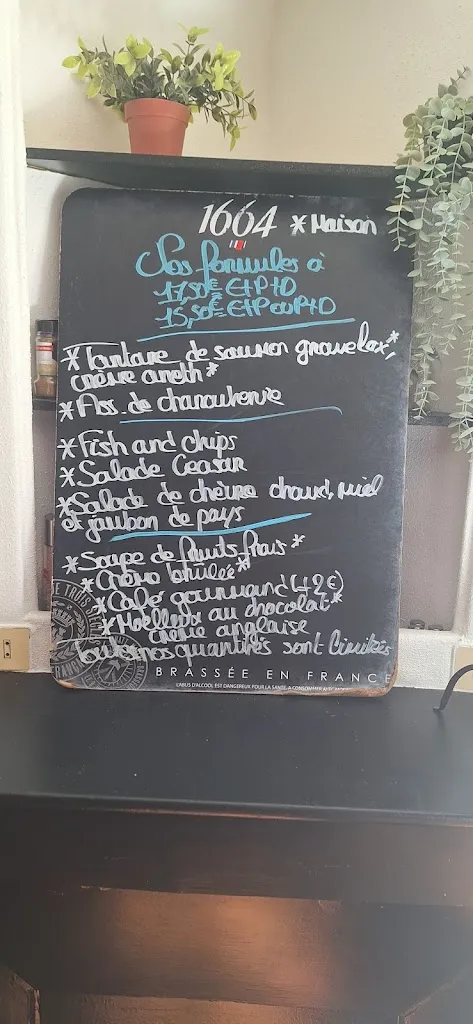 1664 * Maison
Nos formules à
17,50€ E+P+D
15,50€ E+P ou P+D
* Tartare de saumon gravelax*,
crème aneth*
* Ass. de charcuterie
* Fish and chips
* Salade Ceasar
* Salade de chèvre chaud, miel
et jambon de pays
* Soupe de fruits frais *
* Crème brûlée*
* Café gourmand (+2€)
* Moelleux au chocolat*
crème anglaise
Toutes nos quantités sont limitées
BRASSÉE EN FRANCE
L'ABUS D'ALCOOL EST DANGEREUX POUR LA SANTÉ. A CONSOMMER AVEC